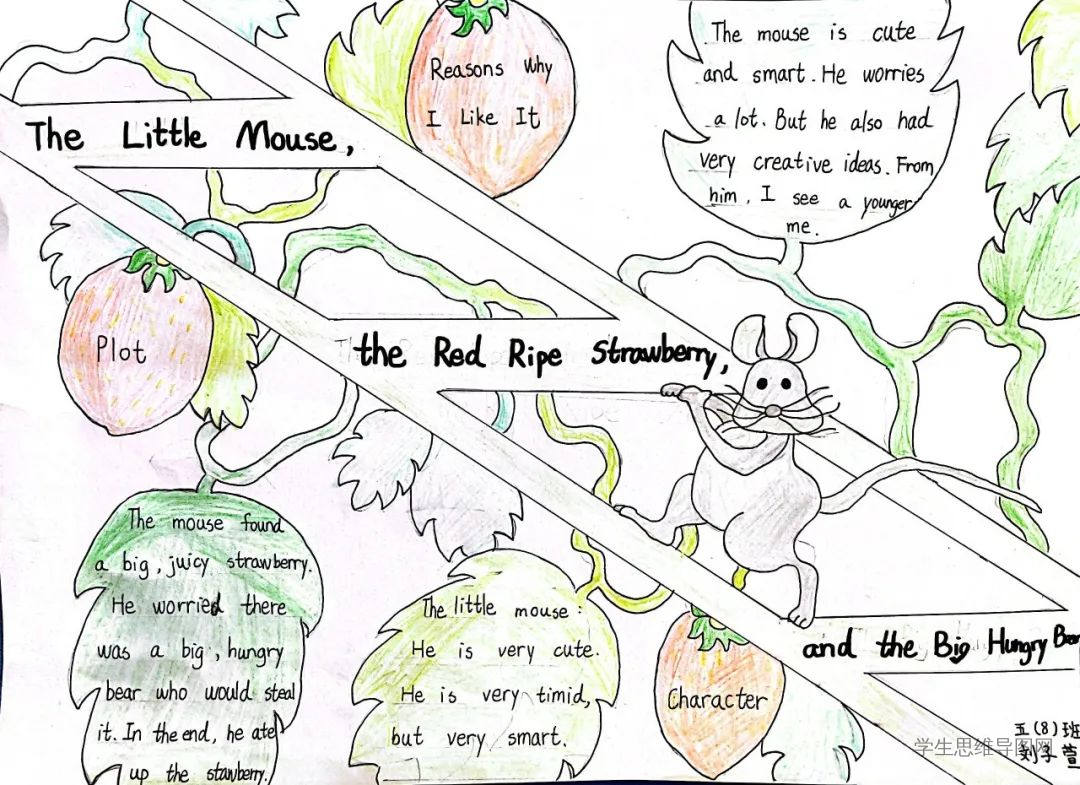 The Little Mouse,
the Red Ripe Strawberry,
and the Big Hungry Bear
Reasons Why
I Like It
The mouse is cute
and smart. He worries
a lot. But he also had
very creative ideas. From
him, I see a younger
me.
Plot
The mouse found
a big, juicy strawberry.
He worried there
was a big, hungry
bear who would steal
it. In the end, he ate
up the stawberry.
The little mouse:
He is very cute.
He is very timid,
but very smart.
Character
五(8)班
刘子萱
学生思维导图网